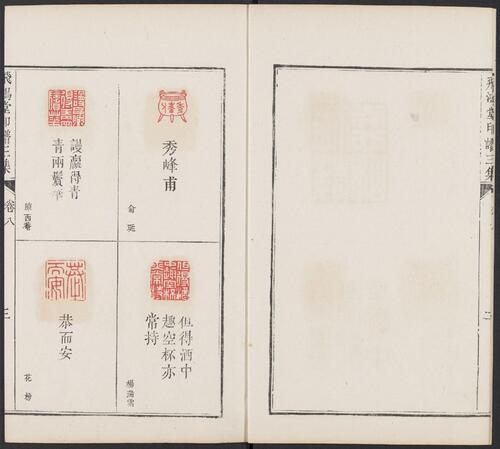 飛鴻堂印譜三集
秀峰甫
俞珽
但得酒中
趣空杯亦
常持
楊瑞雲
謾贏得青
青兩鬢華
恭而安
花榜
飛鴻堂印譜三集
卷八
三